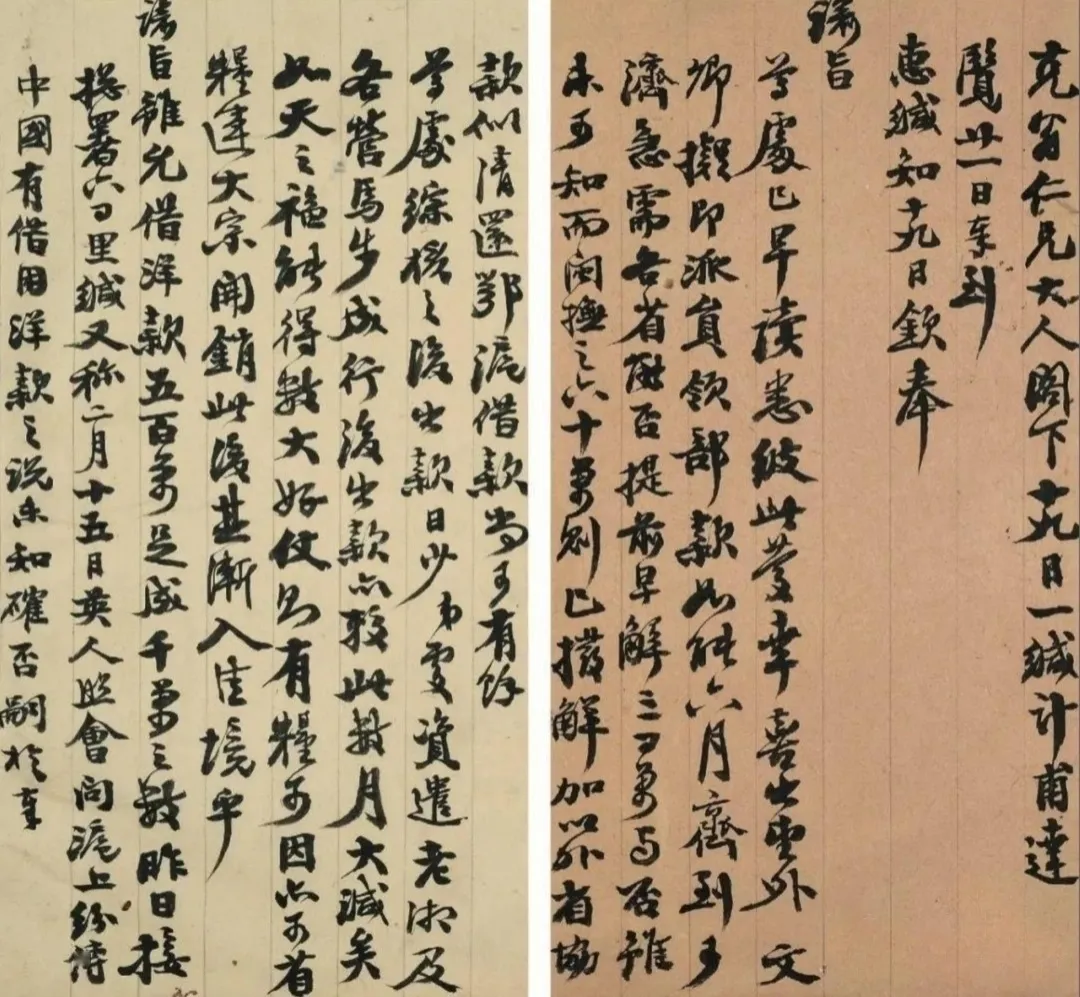 克翁仁兄大人閣下十九日一緘計甫達
覽廿一日奉到
惠緘知十九日欽奉
諭旨
尊處已早讀悉彼此慶幸喜出望外文
卿擬即派員領部款如能六月齊到可
濟急需各省能否提前早解三百萬與否雖
未可知而閩撫之六十萬則已撥解加以外省協
款似清還鄂滬借款尚可有餘
尊處綜核之後出款日少弟處資遣老湘及
各營馬步成行後出款亦較此數月大減矣
如天之福能得數大好仗則有糧可因亦可省
糧運大宗開銷此後其漸入佳境乎
諭旨雖允借洋款五百萬足成千萬之數昨日接
總署六百里緘又称二月十五日英人照會問滬上紛傳
中國有借用洋款之說未知確否嗣於奉